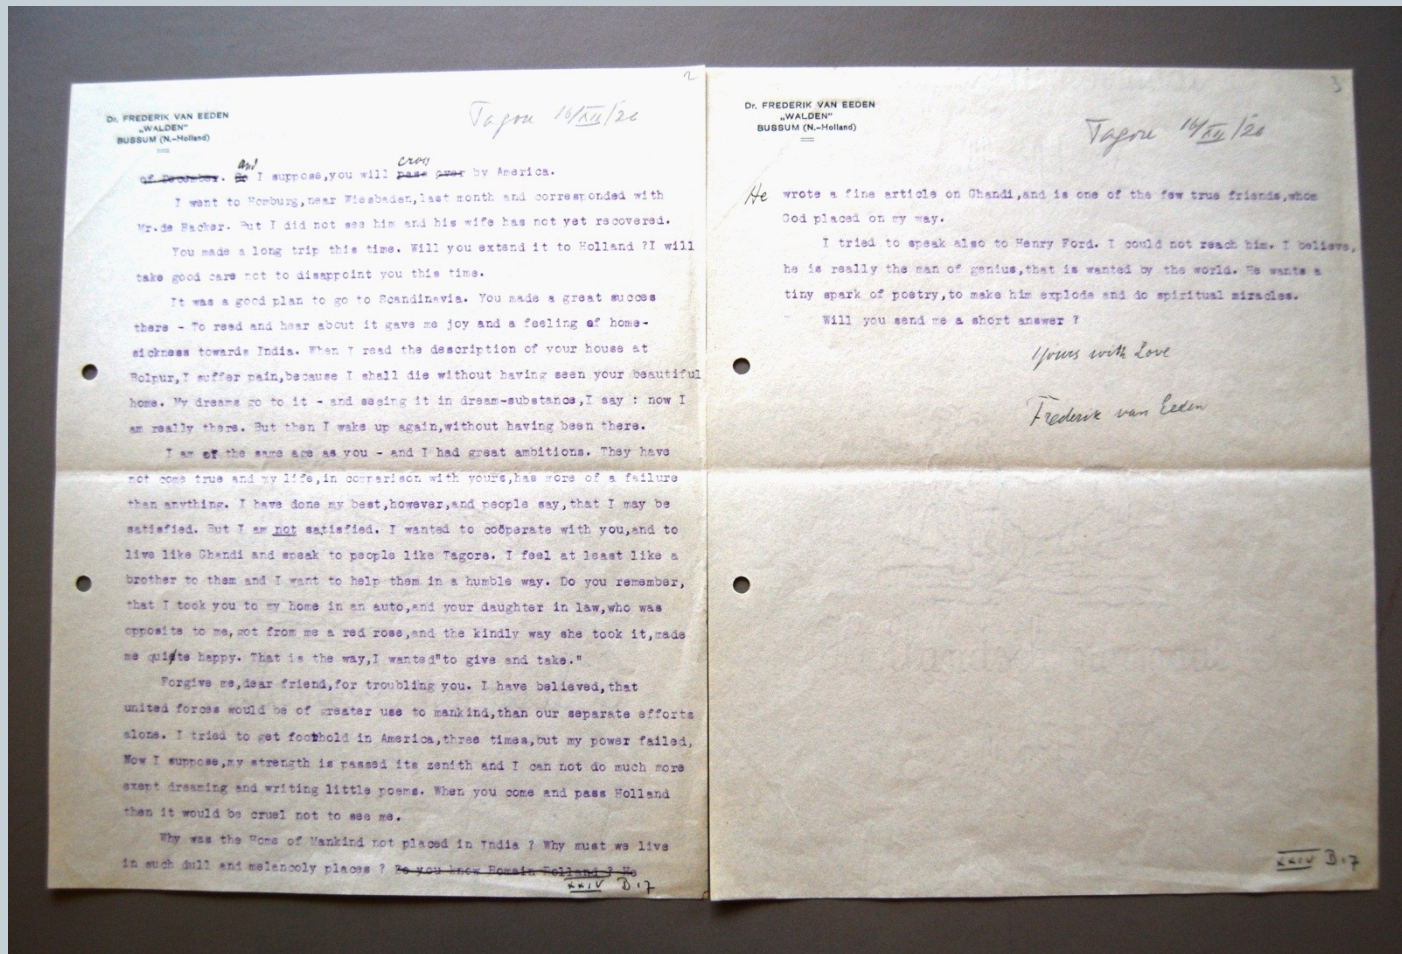 2
Dr. FREDERIK VAN EEDEN
„WALDEN"
BUSSUM (N.-Holland)
Tagore 16/XII/26
and cross
of December. So I suppose,you will pass over by America.
I went to Homburg,near Wiesbaden,last month and corresponded with
Mr.de Backer. But I did not see him and his wife has not yet recovered.
You made a long trip this time. Will you extend it to Holland ?I will
take good care not to disappoint you this time.
It was a good plan to go to Scandinavia. You made a great succes
there - To read and hear about it gave me joy and a feeling of home-
sickness towards India. When I read the description of your house at
Bolpur,I suffer pain,because I shall die without having seen your beautiful
home. My dreams go to it - and seeing it in dream-substance,I say : now I
am really there. But then I wake up again,without having been there.
I am of the same age as you - and I had great ambitions. They have
not come true and my life,in comparison with yours,has more of a failure
than anything. I have done my best,however,and people say,that I may be
satisfied. But I am not satisfied. I wanted to coöperate with you,and to
live like Ghandi and speak to people like Tagore. I feel at least like a
brother to them and I want to help them in a humble way. Do you remember,
that I took you to my home in an auto,and your daughter in law,who was
opposite to me,got from me a red rose,and the kindly way she took it,made
me quite happy. That is the way,I wanted"to give and take."
Forgive me,dear friend,for troubling you. I have believed,that
united forces would be of greater use to mankind,than our separate efforts
alone. I tried to get foothold in America,three times,but my power failed,
Now I suppose,my strength is passed its zenith and I can not do much more
exept dreaming and writing little poems. When you come and pass Holland
then it would be cruel not to see me.
Why was the Home of Mankind not placed in India ? Why must we live
in such dull and melancoly places ? Do you know Romain Rolland ? He
XXIV B.17
3
Dr. FREDERIK VAN EEDEN
„WALDEN"
BUSSUM (N.-Holland)
Tagore 16/XII/26
He wrote a fine article on Ghandi,and is one of the few true friends,whom
God placed on my way.
I tried to speak also to Henry Ford. I could not reach him. I believe,
he is really the man of genius,that is wanted by the world. He wants a
tiny spark of poetry,to make him explode and do spiritual miracles.
Will you send me a short answer ?
Yours with Love
Frederik van Eeden
XXIV B.17